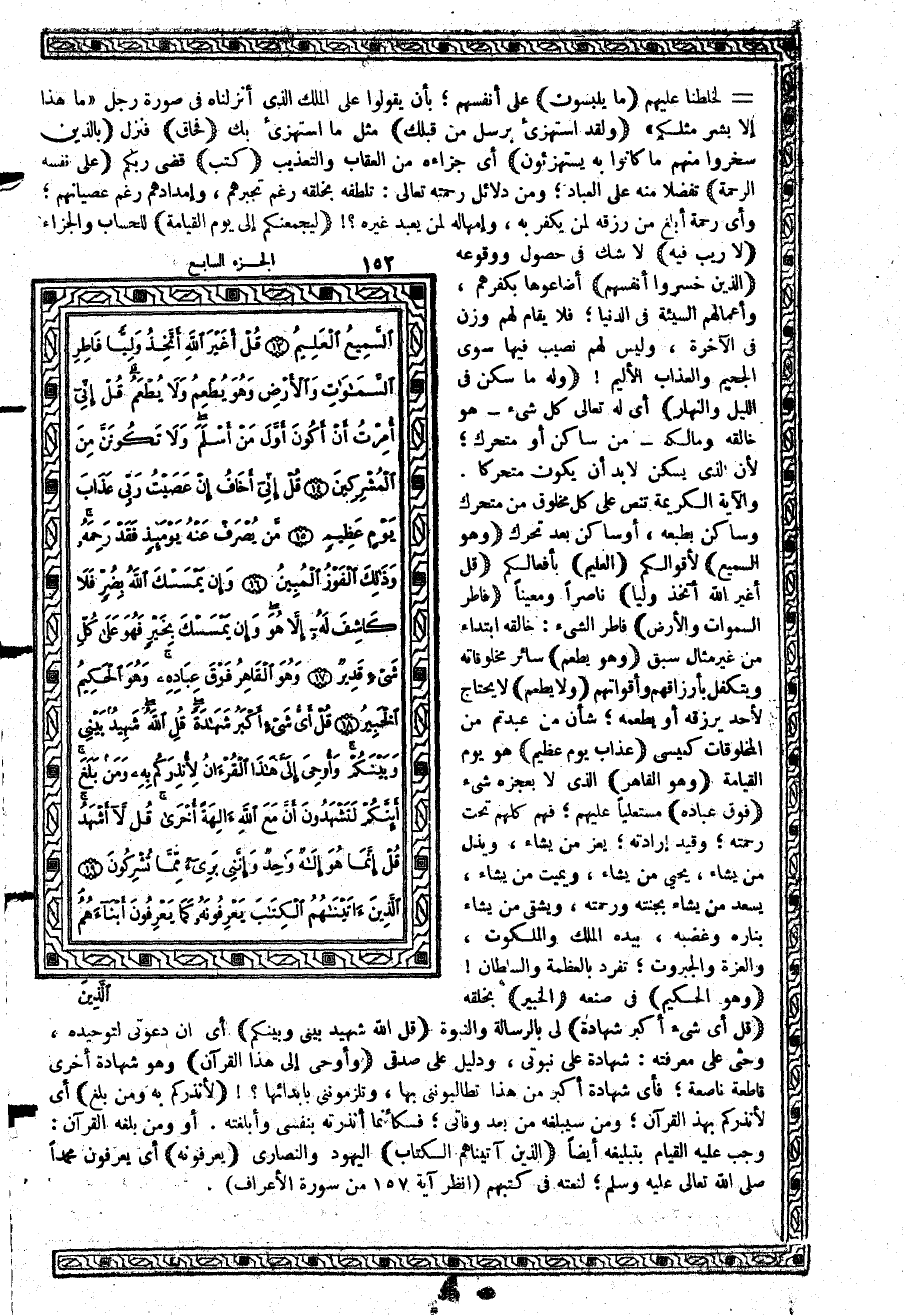 = لخلطنا عليهم (ما يلبسون) على أنفسهم ؛ بأن يقولوا على الملك الذى أنزلناه فى صورة رجل «ما هذا
إلا بشر مثلكم» (ولقد استهزئ برسل من قبلك) مثل ما استهزئ بك (فحاق) فنزل (بالذين
سخروا منهم ما كانوا به يستهزئون) أى جزاءه من العقاب والتعذيب (كتب) قضى ربكم (على نفسه
الرحمة) تفضلا منه على العباد ؛ ومن دلائل رحمته تعالى : تلطفه بخلقه رغم تجبرهم ، وإمدادهم رغم عصيانهم ؛
وأى رحمة أبلغ من رزقه لمن يكفر به ، وإمهاله لمن يعبد غيره ؟! (ليجمعنكم إلى يوم القيامة) للحساب والجزاء
(لا ريب فيه) لا شك فى حصول ووقوعه
(الذين خسروا أنفسهم) أضاعوها بكفرهم ،
وأعمالهم السيئة فى الدنيا ؛ فلا يقام لهم وزن
فى الآخرة ، وليس لهم نصيب فيها سوى
الجحيم والعذاب الأليم ! (وله ما سكن فى
الليل والنهار) أى له تعالى كل شىء - هو
خالقه ومالكه - من ساكن أو متحرك ؛
لأن الذى يسكن لابد أن يكون متحركا .
والآية الكريمة تنص على كل مخلوق من متحرك
وساكن بطبعه ، أوساكن بعد تحرك (وهو
السميع) لأقوالكم (العليم) بأفعالكم (قل
أغير الله أتخذ وليا) ناصراً ومعيناً (فاطر
السموات والأرض) فاطر الشىء : خالقه ابتداء
من غير مثال سبق (وهو يطعم) سائر مخلوقاته
ويتكفل بأرزاقهم وأقواتهم (ولايطعم) لايحتاج
لأحد يرزقه أو يطعمه ؛ شأن من عبدتم من
المخلوقات كعيسى (عذاب يوم عظيم) هو يوم
القيامة (وهو القاهر) الذى لا يعجزه شىء
(فوق عباده) مستعلياً عليهم ؛ فهم كلهم تحت
رحمته ؛ وقيد إرادته ؛ يعز من يشاء ، ويذل
من يشاء ، يحيى من يشاء ، ويميت من يشاء ،
يسعد من يشاء بجنته ورحمته ، ويشقى من يشاء
بناره وغضبه ، بيده الملك والملكوت ،
والعزة والجبروت ؛ تفرد بالعظمة والسلطان !
(وهو الحكيم) فى صنعه (الخبير) بخلقه
١٥٢ الجزء السابع
ٱلسَّمِيعُ ٱلْعَلِيمُ ١٣ قُلْ أَغَيْرَ ٱللَّهِ أَتَّخِذُ وَلِيًّا فَاطِرِ
ٱلسَّمَٰوَٰتِ وَٱلْأَرْضِ وَهُوَ يُطْعِمُ وَلَا يُطْعَمُ ۗ قُلْ إِنِّىٓ
أُمِرْتُ أَنْ أَكُونَ أَوَّلَ مَنْ أَسْلَمَ ۖ وَلَا تَكُونَنَّ مِنَ
ٱلْمُشْرِكِينَ ١٤ قُلْ إِنِّىٓ أَخَافُ إِنْ عَصَيْتُ رَبِّى عَذَابَ
يَوْمٍ عَظِيمٍ ١٥ مَّن يُصْرَفْ عَنْهُ يَوْمَئِذٍ فَقَدْ رَحِمَهُۥ ۚ
وَذَٰلِكَ ٱلْفَوْزُ ٱلْمُبِينُ ١٦ وَإِن يَمْسَسْكَ ٱللَّهُ بِضُرٍّ فَلَا
كَاشِفَ لَهُۥٓ إِلَّا هُوَ ۖ وَإِن يَمْسَسْكَ بِخَيْرٍ فَهُوَ عَلَىٰ كُلِّ
شَىْءٍ قَدِيرٌ ١٧ وَهُوَ ٱلْقَاهِرُ فَوْقَ عِبَادِهِۦ ۚ وَهُوَ ٱلْحَكِيمُ
ٱلْخَبِيرُ ١٨ قُلْ أَىُّ شَىْءٍ أَكْبَرُ شَهَٰدَةً ۖ قُلِ ٱللَّهُ ۖ شَهِيدٌۢ بَيْنِى
وَبَيْنَكُمْ ۚ وَأُوحِىَ إِلَىَّ هَٰذَا ٱلْقُرْءَانُ لِأُنذِرَكُم بِهِۦ وَمَنۢ بَلَغَ ۚ
أَئِنَّكُمْ لَتَشْهَدُونَ أَنَّ مَعَ ٱللَّهِ ءَالِهَةً أُخْرَىٰ ۚ قُل لَّآ أَشْهَدُ ۚ
قُلْ إِنَّمَا هُوَ إِلَٰهٌ وَٰحِدٌ وَإِنَّنِى بَرِىٓءٌ مِّمَّا تُشْرِكُونَ ١٩
ٱلَّذِينَ ءَاتَيْنَٰهُمُ ٱلْكِتَٰبَ يَعْرِفُونَهُۥ كَمَا يَعْرِفُونَ أَبْنَآءَهُمُ
ٱلَّذِينَ
(قل أى شىء أكبر شهادة) لى بالرسالة والنبوة (قل الله شهيد بينى وبينكم) أى ان دعوتى لتوحيده ،
وحثى على معرفته : شهادة على نبوتى ، ودليل على صدقى (وأوحى إلى هذا القرآن) وهو شهادة أخرى
قاطعة ناصعة ؛ فأى شهادة أكبر من هذا تطالبوننى بها ، وتلزموننى بابدائها ؟ ! (لأنذركم به ومن بلغ) أى
لأنذركم بهذ القرآن ؛ ومن سيبلغه من بعد وفاتى ؛ فسكأنما أنذرته بنفسى وأبلغته . أو ومن بلغه القرآن :
وجب عليه القيام بتبليغه أيضاً (الذين آتيناهم الكتاب) اليهود والنصارى (يعرفونه) أى يعرفون محمداً
صلى الله تعالى عليه وسلم ؛ لنعته فى كتبهم (انظر آية ١٥٧ من سورة الأعراف) .